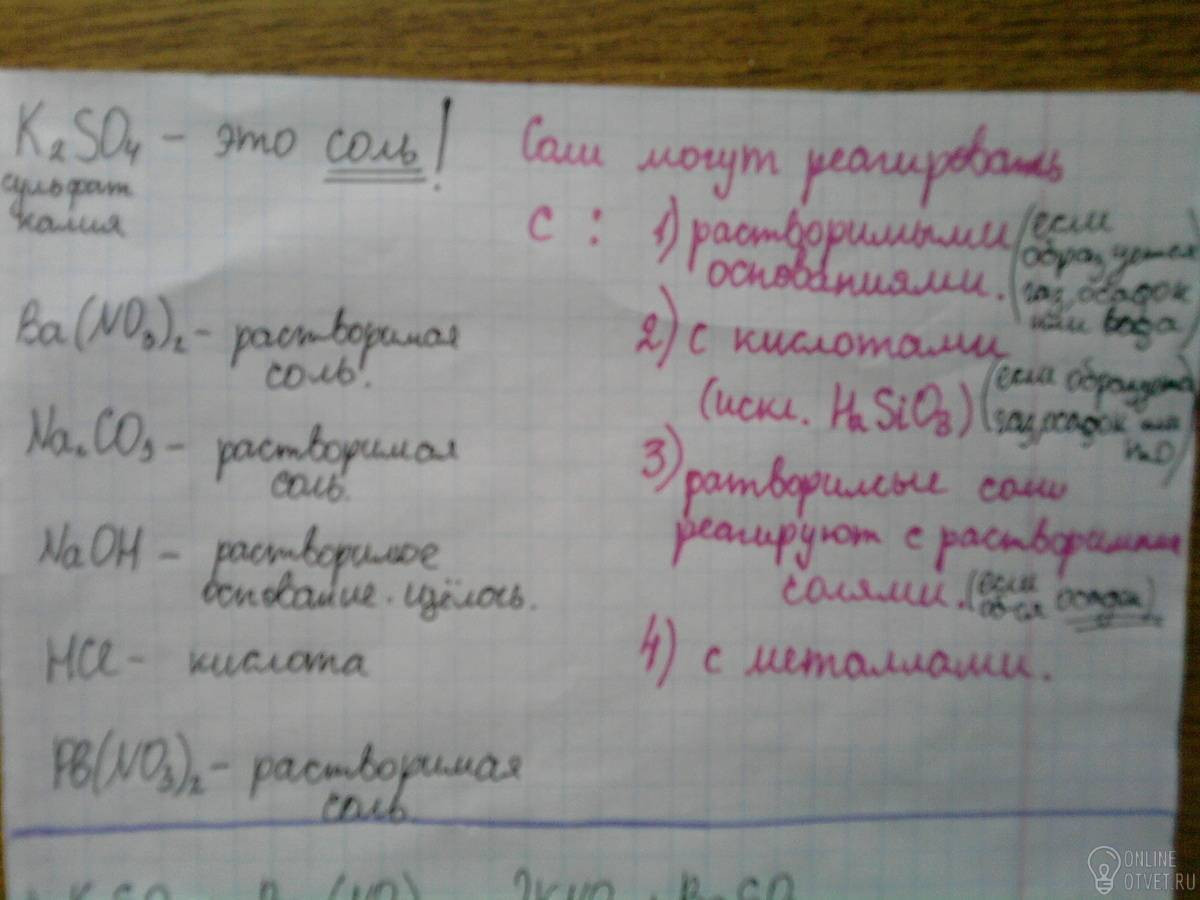 K₂SO₄ – это соль!
сульфат
калия
Ba(NO₃)₂ – растворимая
соль.
Na₂CO₃ – растворимая
соль.
NaOH – растворимое
основание. щёлочь.
HCl – кислота
Pb(NO₃)₂ – растворимая
соль
Соли могут реагировать
с: 1) растворимыми
основаниями.
(если
образуется
газ, осадок
или вода)
2) с кислотами
(искл. H₂SiO₃)
(если образуется
газ, осадок или
H₂O)
3) ратворимые соли
реагируют с растворимыми
солями. (если
об-ся осадок)
4) с металлами.
ONLINE
OTVET.RU